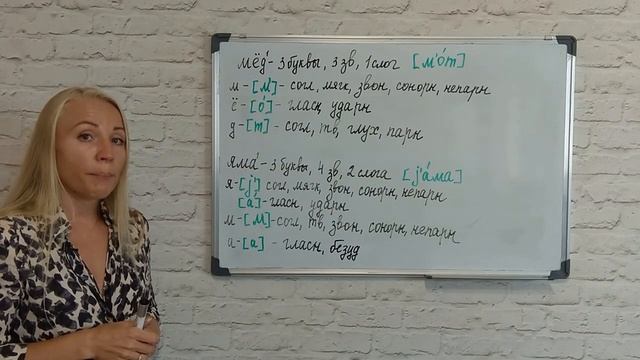 мёд - 3 буквы, 3 зв, 1 слог [м'о́т]
м - [м'] - согл, мягк, звон, сонорн, непарн
ё - [о́] - гласн, ударн
д - [т] - согл, тв, глух, парн
яма́ - 3 буквы, 4 зв, 2 слога [j'а́ма]
я - [j'] согл, мягк, звон, сонорн, непарн
[а́] - гласн, ударн
м - [м] - согл, тв, звон, сонорн, непарн
а - [а] - гласн, безуд